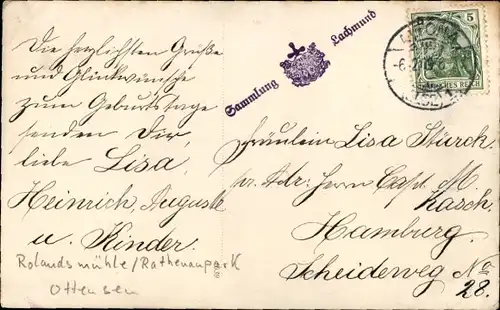 Die herzlichsten Grüße
und Glückwünsche
zum Geburtstage
senden Dir,
liebe Lisa,
Heinrich, Auguste
u. Kinder.
Rolandsmühle/Rathenaupark
Ottensen
Sammlung Lachmund
5
ALTONA
DEUTSCHES REICH
Fräulein Lisa Stürck.
pr. Adr: Herrn Capt. M
Kasch.
Hamburg.
Scheideweg No
28.